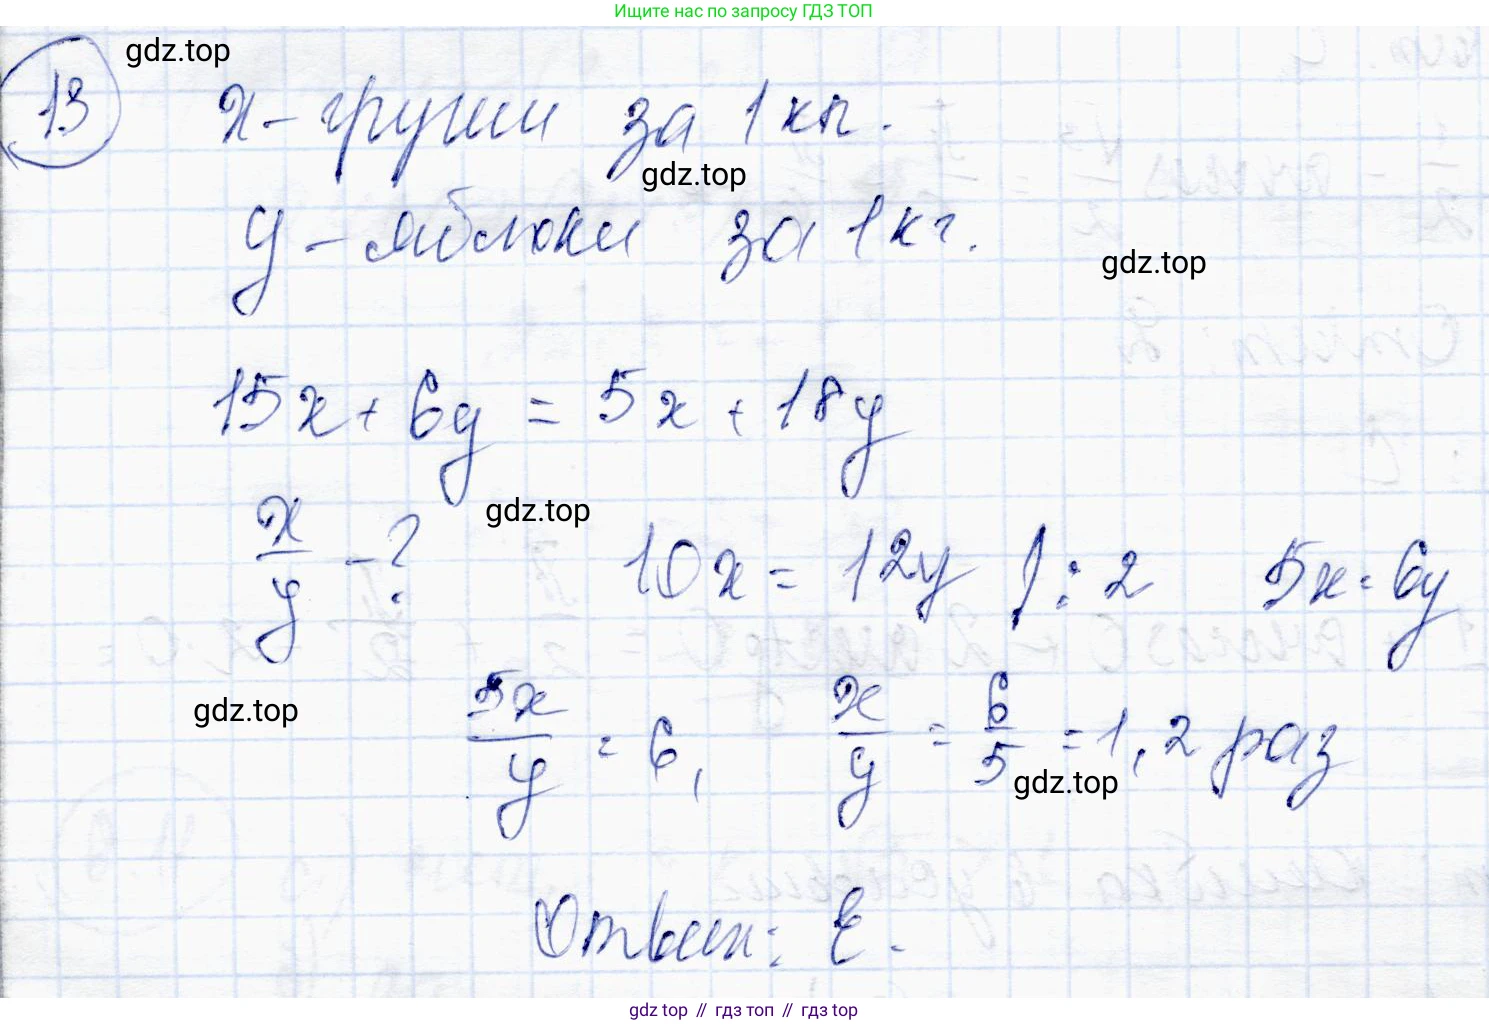 Ищите нас по запросу ГДЗ ТОП
13
gdz.top
x - груши за 1 кг.
gdz.top
y - яблоки за 1 кг.
gdz.top
15x + 6y = 5x + 18y
x/y - ?
gdz.top
10x = 12y | : 2
5x = 6y
gdz.top
5x/y = 6,
x/y = 6/5 = 1,2 раз
gdz.top
Ответ: E.
gdz.top // гдз топ // гдз top